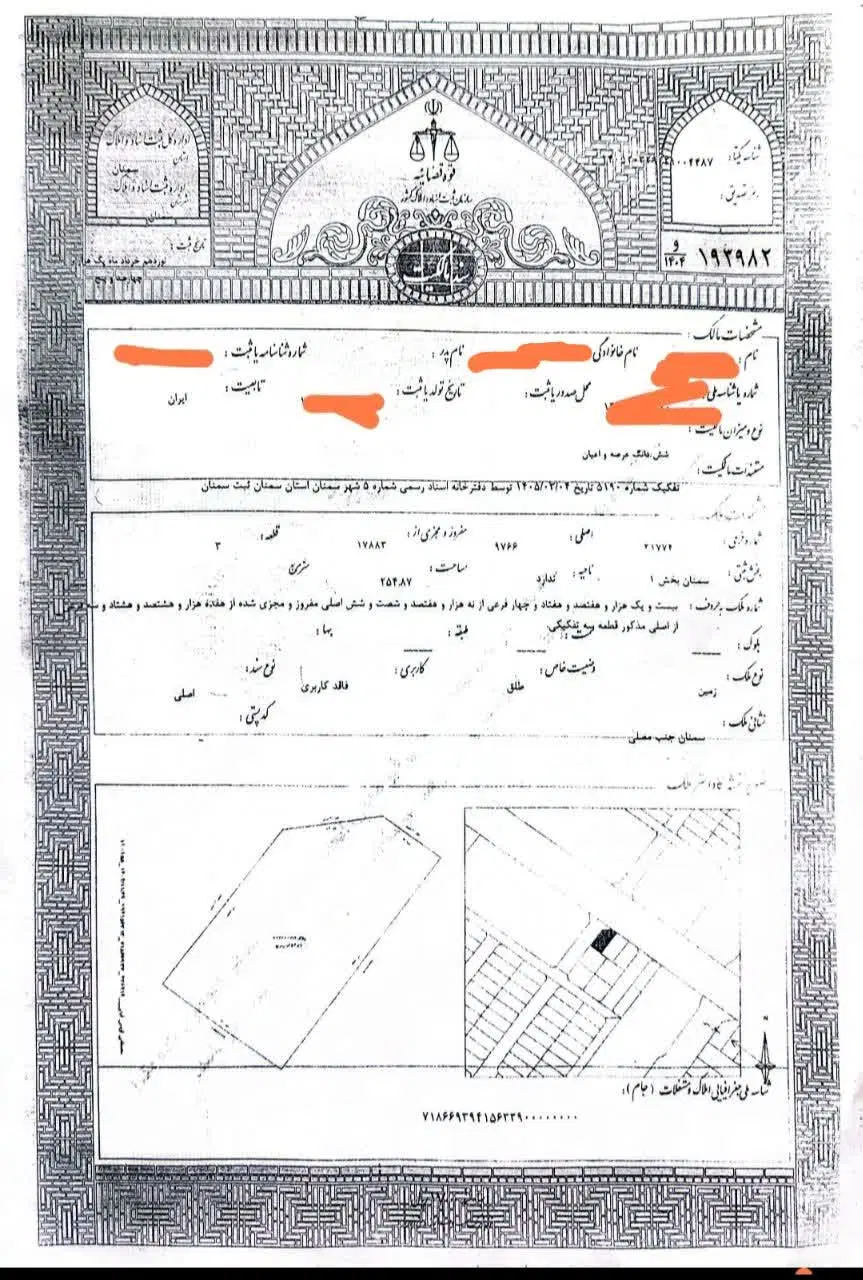 قوه قضائیه
سازمان ثبت اسناد و املاک کشور
اداره کل ثبت اسناد و املاک
استان
سمنان
اداره ثبت اسناد و املاک
سمنان
تاریخ ثبت :
نوزدهم خرداد ماه یک هزار
چهارصد و پنج
شناسه یکتا :
رمز تصدیق :
۱۹۳۹۸۲
و
۱۴۰۴
سند مالکیت
مشخصات مالک :
نام : نام خانوادگی نام پدر : شماره شناسنامه یا ثبت :
شماره یا شناسه ملی : محل صدور یا ثبت : تاریخ تولد یا ثبت : تابعیت : ایران
نوع و میزان مالکیت :
شش دانگ عرصه و اعیان
مستندات مالکیت :
تفکیک شماره ۵۱۹۰ تاریخ ۱۴۰۵/۰۳/۰۴ توسط دفترخانه اسناد رسمی شماره ۵ شهر سمنان استان سمنان ثبت سمنان
شماره فرعی : ۲۱۷۷۴ اصلی : ۹۷۶۶ مفروز و مجزی از : ۱۷۸۸۳ قطعه : ۳
بخش ثبتی : سمنان بخش ۱ ناحیه : ندارد مساحت : ۲۵۴.۸۷ متر مربع
شماره ملک به حروف : بیست و یک هزار و هفتصد و هفتاد و چهار فرعی از نه هزار و هفتصد و شصت و شش اصلی مفروز و مجزی شده از هفده هزار و هشتصد و هشتاد و سه فرعی
از اصلی مذکور قطعه سه تفکیکی
بلوک : طبقه :
نوع ملک : زمین وضعیت خاص : طلق کاربری : فاقد کاربری نوع سند : اصلی
نشانی ملک : سمنان جنب مصلی کد پستی :
شناسه ملی جغرافیایی املاک و مستغلات (جام) :
۷۱۸۶۶۹۳۹۴۱۵۶۳۳۹۰۰۰۰۰۰۰۰